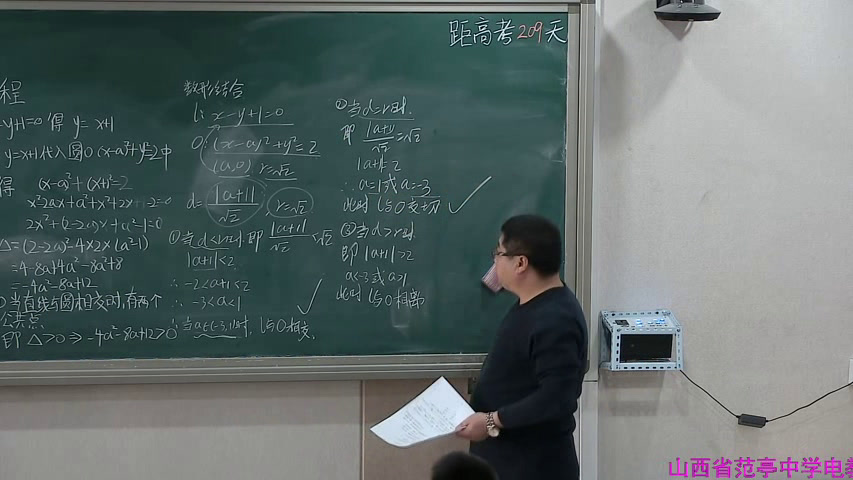 距高考209天
程
-y+1=0 得 y= x+1
y=x+1代入圆O (x-a)²+y²=2中
得 (x-a)²+(x+1)²=2
x²-2ax+a²+x²+2x+1-2=0
2x²+(2-2a)x+a²-1=0
△=(2-2a)²-4×2×(a²-1)
=4-8a+4a²-8a²+8
=-4a²-8a+12
①当直线与圆相交时,有两个
公共点
即 △>0⇒-4a²-8a+12>0
数形结合
l: x-y+1=0
O: (x-a)²+y²=2
(a,0) r=√2
d= |a+1|/√2 r=√2
①当d<r时.即 |a+1|/√2<√2
|a+1|<2
∴ -2<a+1<2
∴ -3<a<1
∴当a∈(-3,1)时, l与O相交.
②当d=r时.
即 |a+1|/√2=√2
|a+1|=2
∴a=1或a=-3
此时 l与O相切
③当d>r时.
即 |a+1|>2
a<-3或a>1
此时 l与O相离
山西省范亭中学电教